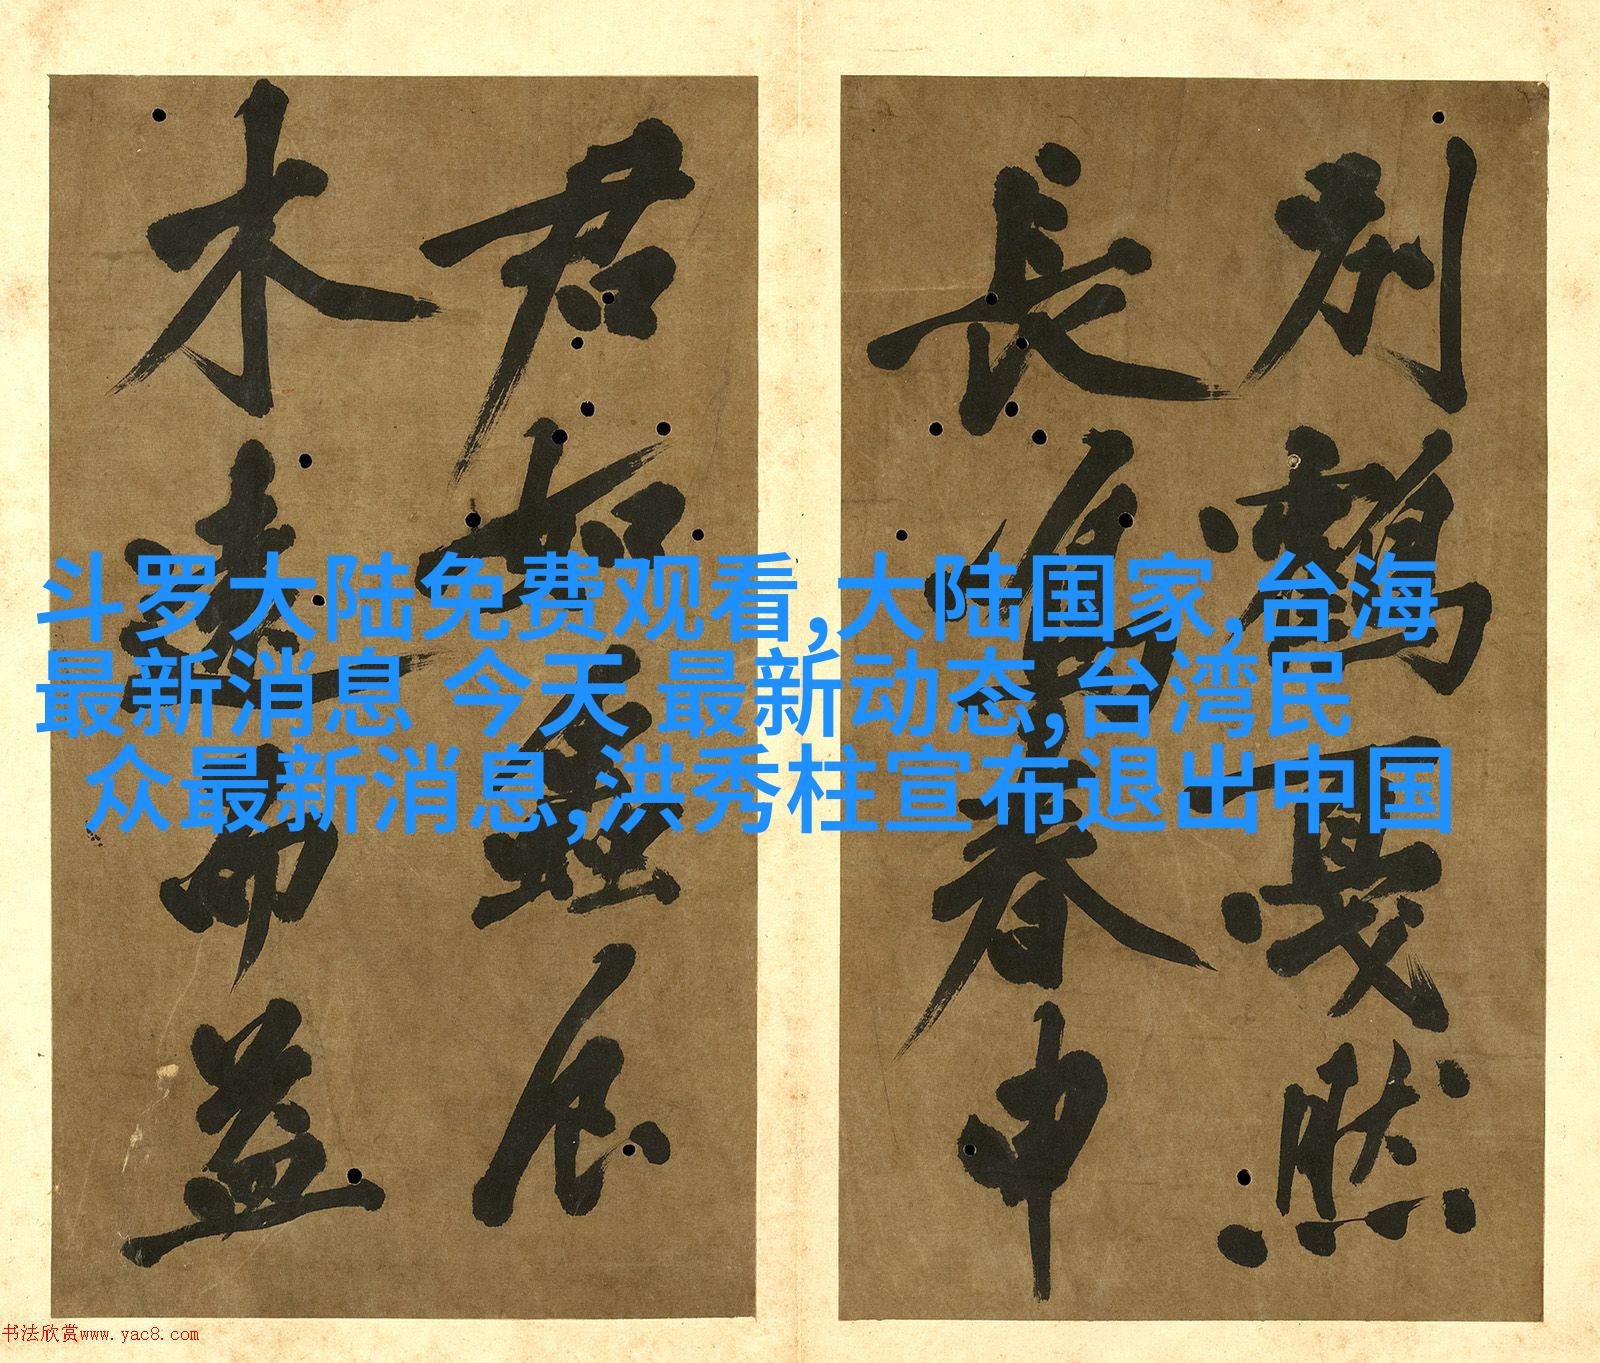 斗罗大陆免费观看,大陆国家,台海
最新消息 今天 最新动态,台湾民
众最新消息,洪秀柱宣布退出中国
別鶴戛然
長春申
君如
木遠而益
书法欣赏www.yac8.com